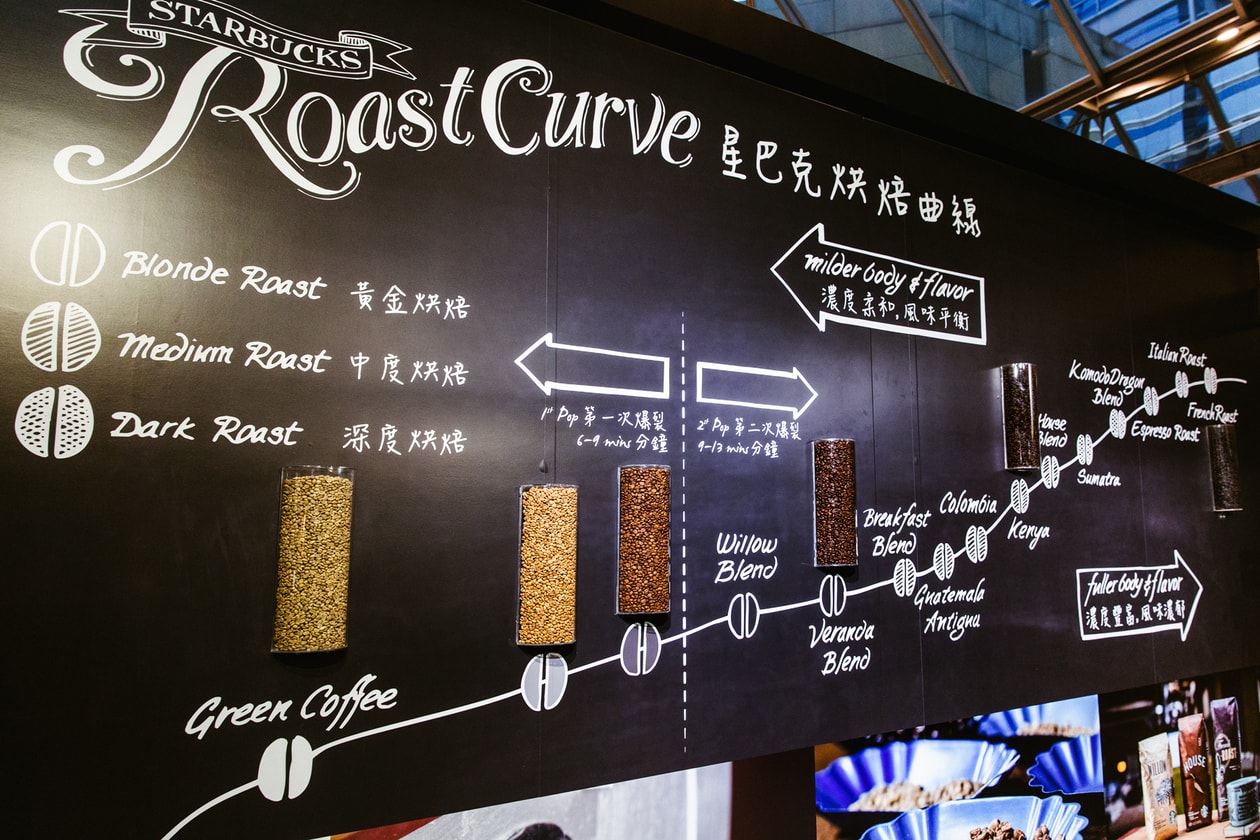 STARBUCKS
Roast Curve 星巴克烘焙曲線
Blonde Roast 黃金烘焙
Medium Roast 中度烘焙
Dark Roast 深度烘焙
milder body & flavor
濃度柔和,風味平衡
1st Pop 第一次爆裂
6-9 mins 分鐘
2st Pop 第二次爆裂
9-13 mins 分鐘
Green Coffee
Willow
Blend
Veranda
Blend
Breakfast
Blend
Guatemala
Antigua
Colombia
Kenya
House
Blend
Sumatra
Komodo Dragon
Blend
Espresso Roast
Italian Roast
French Roast
fuller body & flavor
濃度豐富,風味濃郁
WILLOW
HOUSE
ROAST